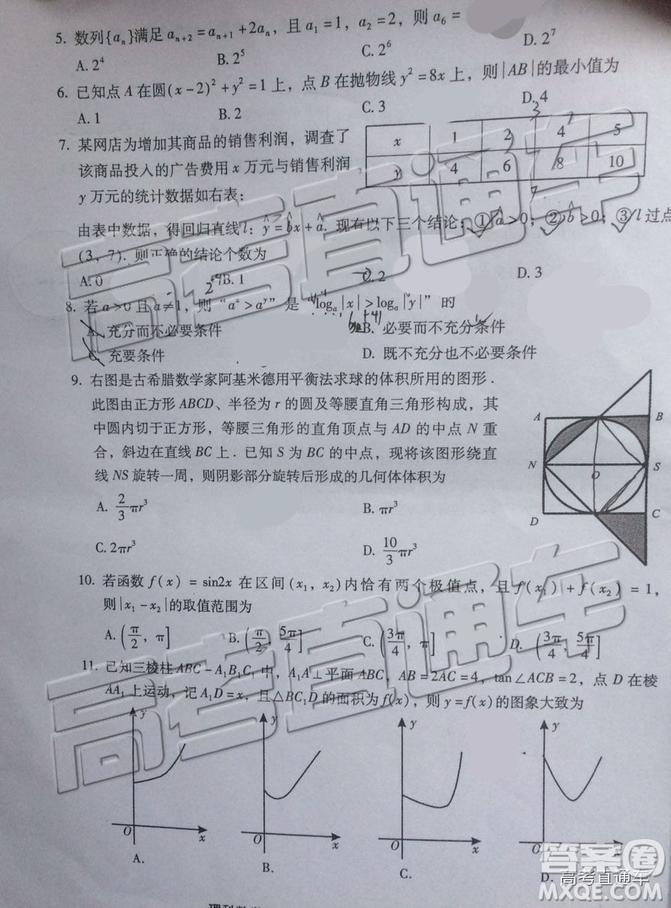 5. 数列{aₙ}满足 aₙ₊₂=aₙ₊₁+2aₙ，且 a₁=1，a₂=2，则 a₆=
A. 2⁴ B. 2⁵ C. 2⁶ D. 2⁷
6. 已知点 A 在圆(x-2)²+y²=1 上，点 B 在抛物线 y²=8x 上，则|AB|的最小值为
A. 1 B. 2 C. 3 D. 4
7. 某网店为增加其商品的销售利润，调查了
该商品投入的广告费用 x 万元与销售利润
y 万元的统计数据如右表：
x 1 2 4 5
y 4 6 8 10
由表中数据，得回归直线 l：ŷ=b̂x+â. 现有以下三个结论：①â>0；②b̂>0；③l 过点
(3，7). 则正确的结论个数为
A. 0 B. 1 C. 2 D. 3
8. 若 a>0 且 a≠1，则“aˣ>aʸ”是“logₐ|x|>logₐ|y|”的
A. 充分而不必要条件 B. 必要而不充分条件
C. 充要条件 D. 既不充分也不必要条件
9. 右图是古希腊数学家阿基米德用平衡法求球的体积所用的图形.
此图由正方形 ABCD、半径为 r 的圆及等腰直角三角形构成，其
中圆内切于正方形，等腰三角形的直角顶点与 AD 的中点 N 重
合，斜边在直线 BC 上. 已知 S 为 BC 的中点，现将该图形绕直
线 NS 旋转一周，则阴影部分旋转后形成的几何体体积为
A. 2/3 πr³ B. πr³
C. 2πr³ D. 10/3 πr³
A B
N O S
D C
10. 若函数 f(x)=sin2x 在区间(x₁，x₂)内恰有两个极值点，且 f(x₁)+f(x₂)=1，
则|x₁-x₂|的取值范围为
A. (π/2，π] B. (π/2，5π/4] C. (3π/4，π] D. (3π/4，5π/4]
11. 已知三棱柱 ABC-A₁B₁C₁ 中，A₁A⊥平面 ABC，AB=2AC=4，tan∠ACB=2，点 D 在棱
AA₁ 上运动，记 A₁D=x，且△BC₁D 的面积为 f(x)，则 y=f(x)的图象大致为
y y y y
O x O x O x O
A. B. C. D.
高考直通车
高考直通车
答案圈
高考直通车